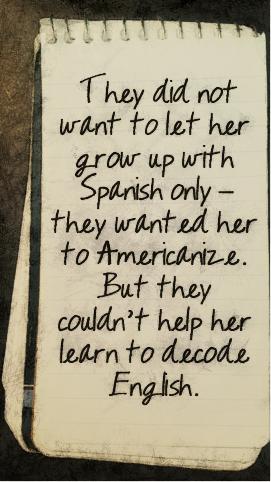 They did not
want to let her
grow up with
Spanish only –
they wanted her
to Americanize.
But they
couldn't help her
learn to decode
English.